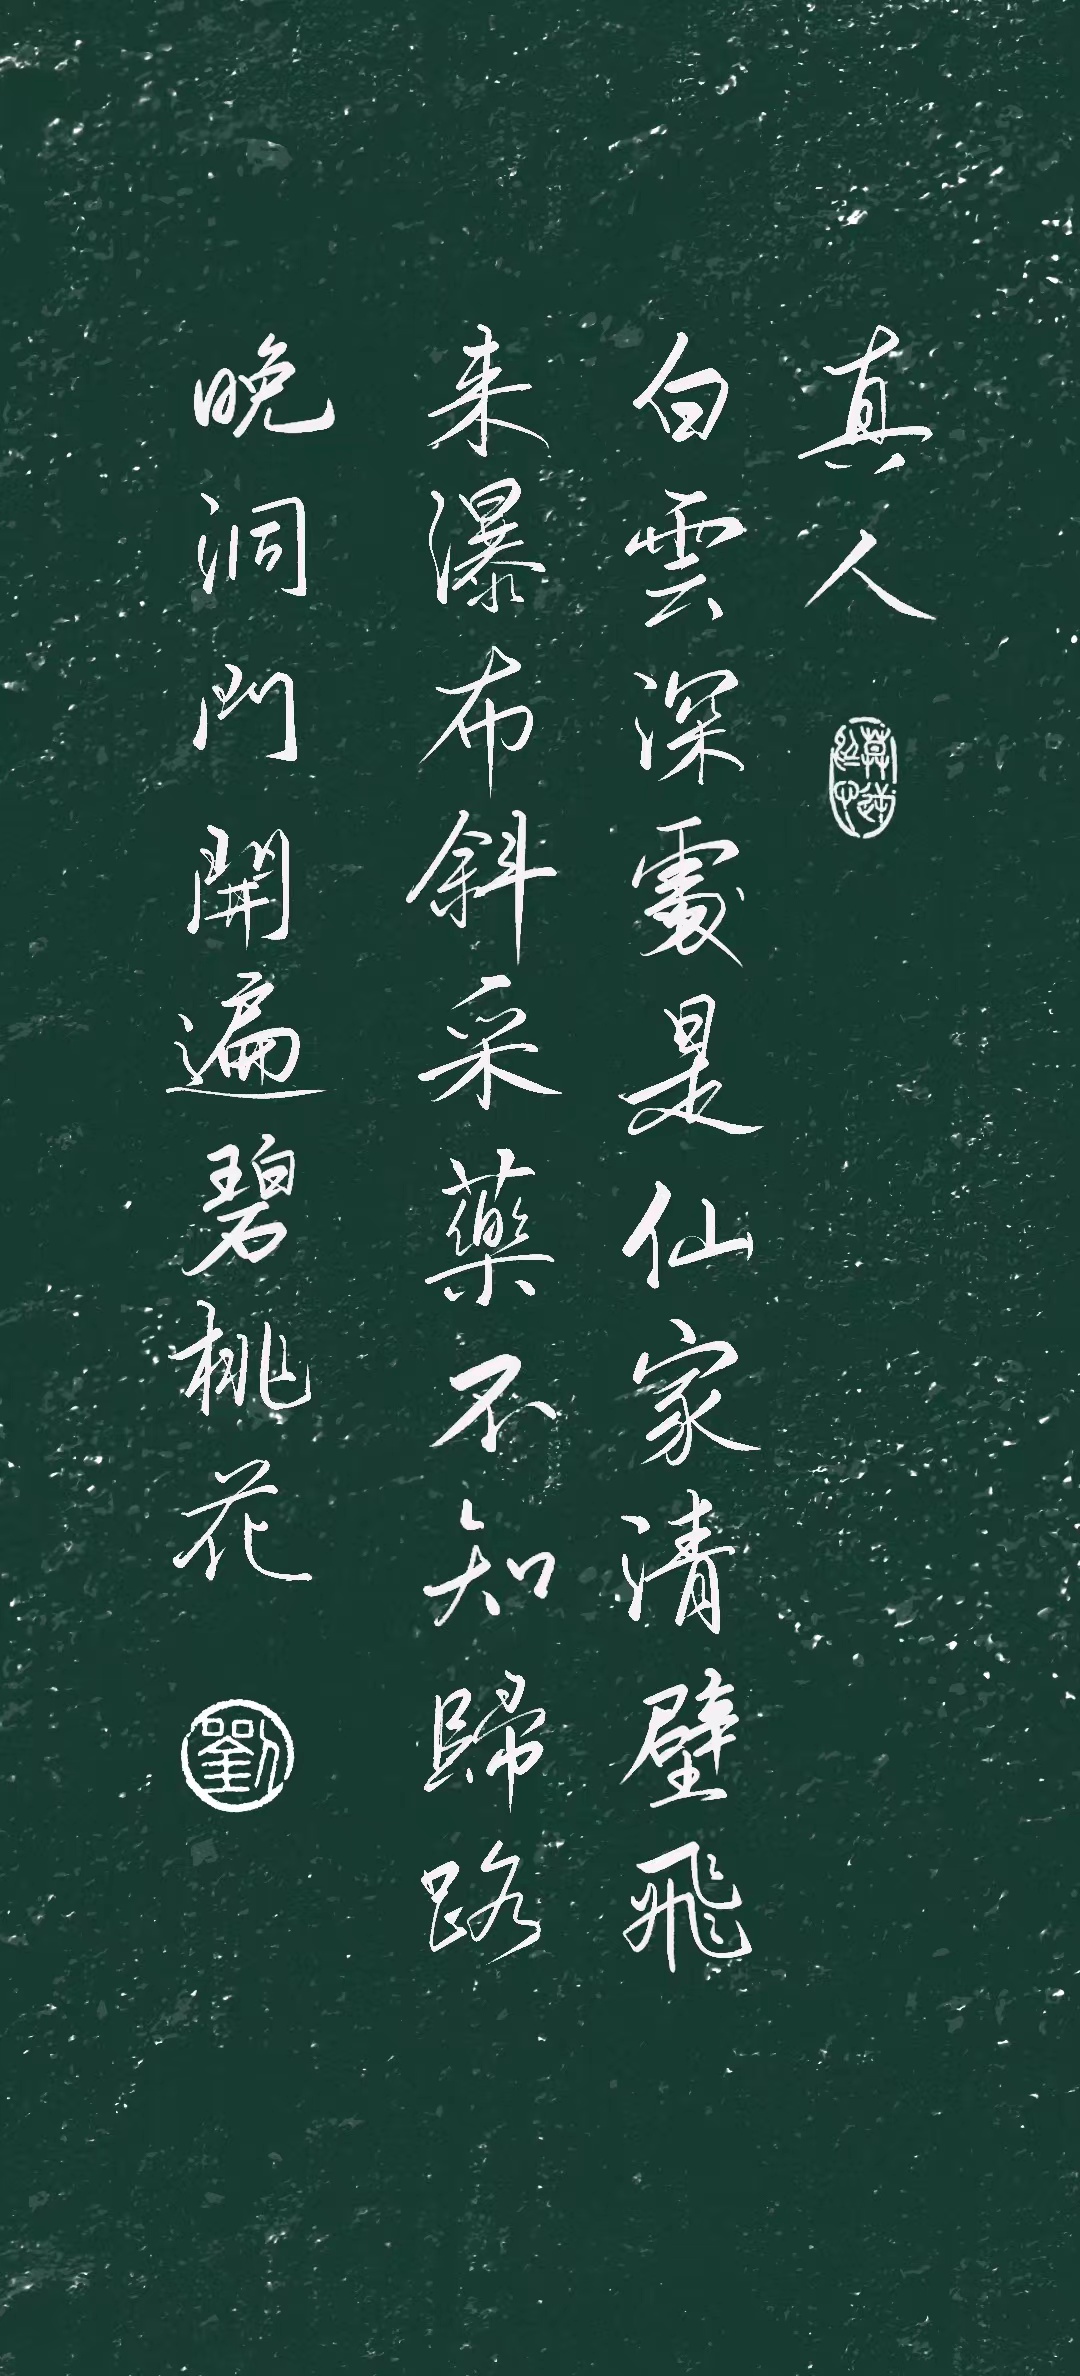 真人
白雲深處是仙家清壁飛
来瀑布斜采藥不知歸路
晚洞門開遍碧桃花
劉